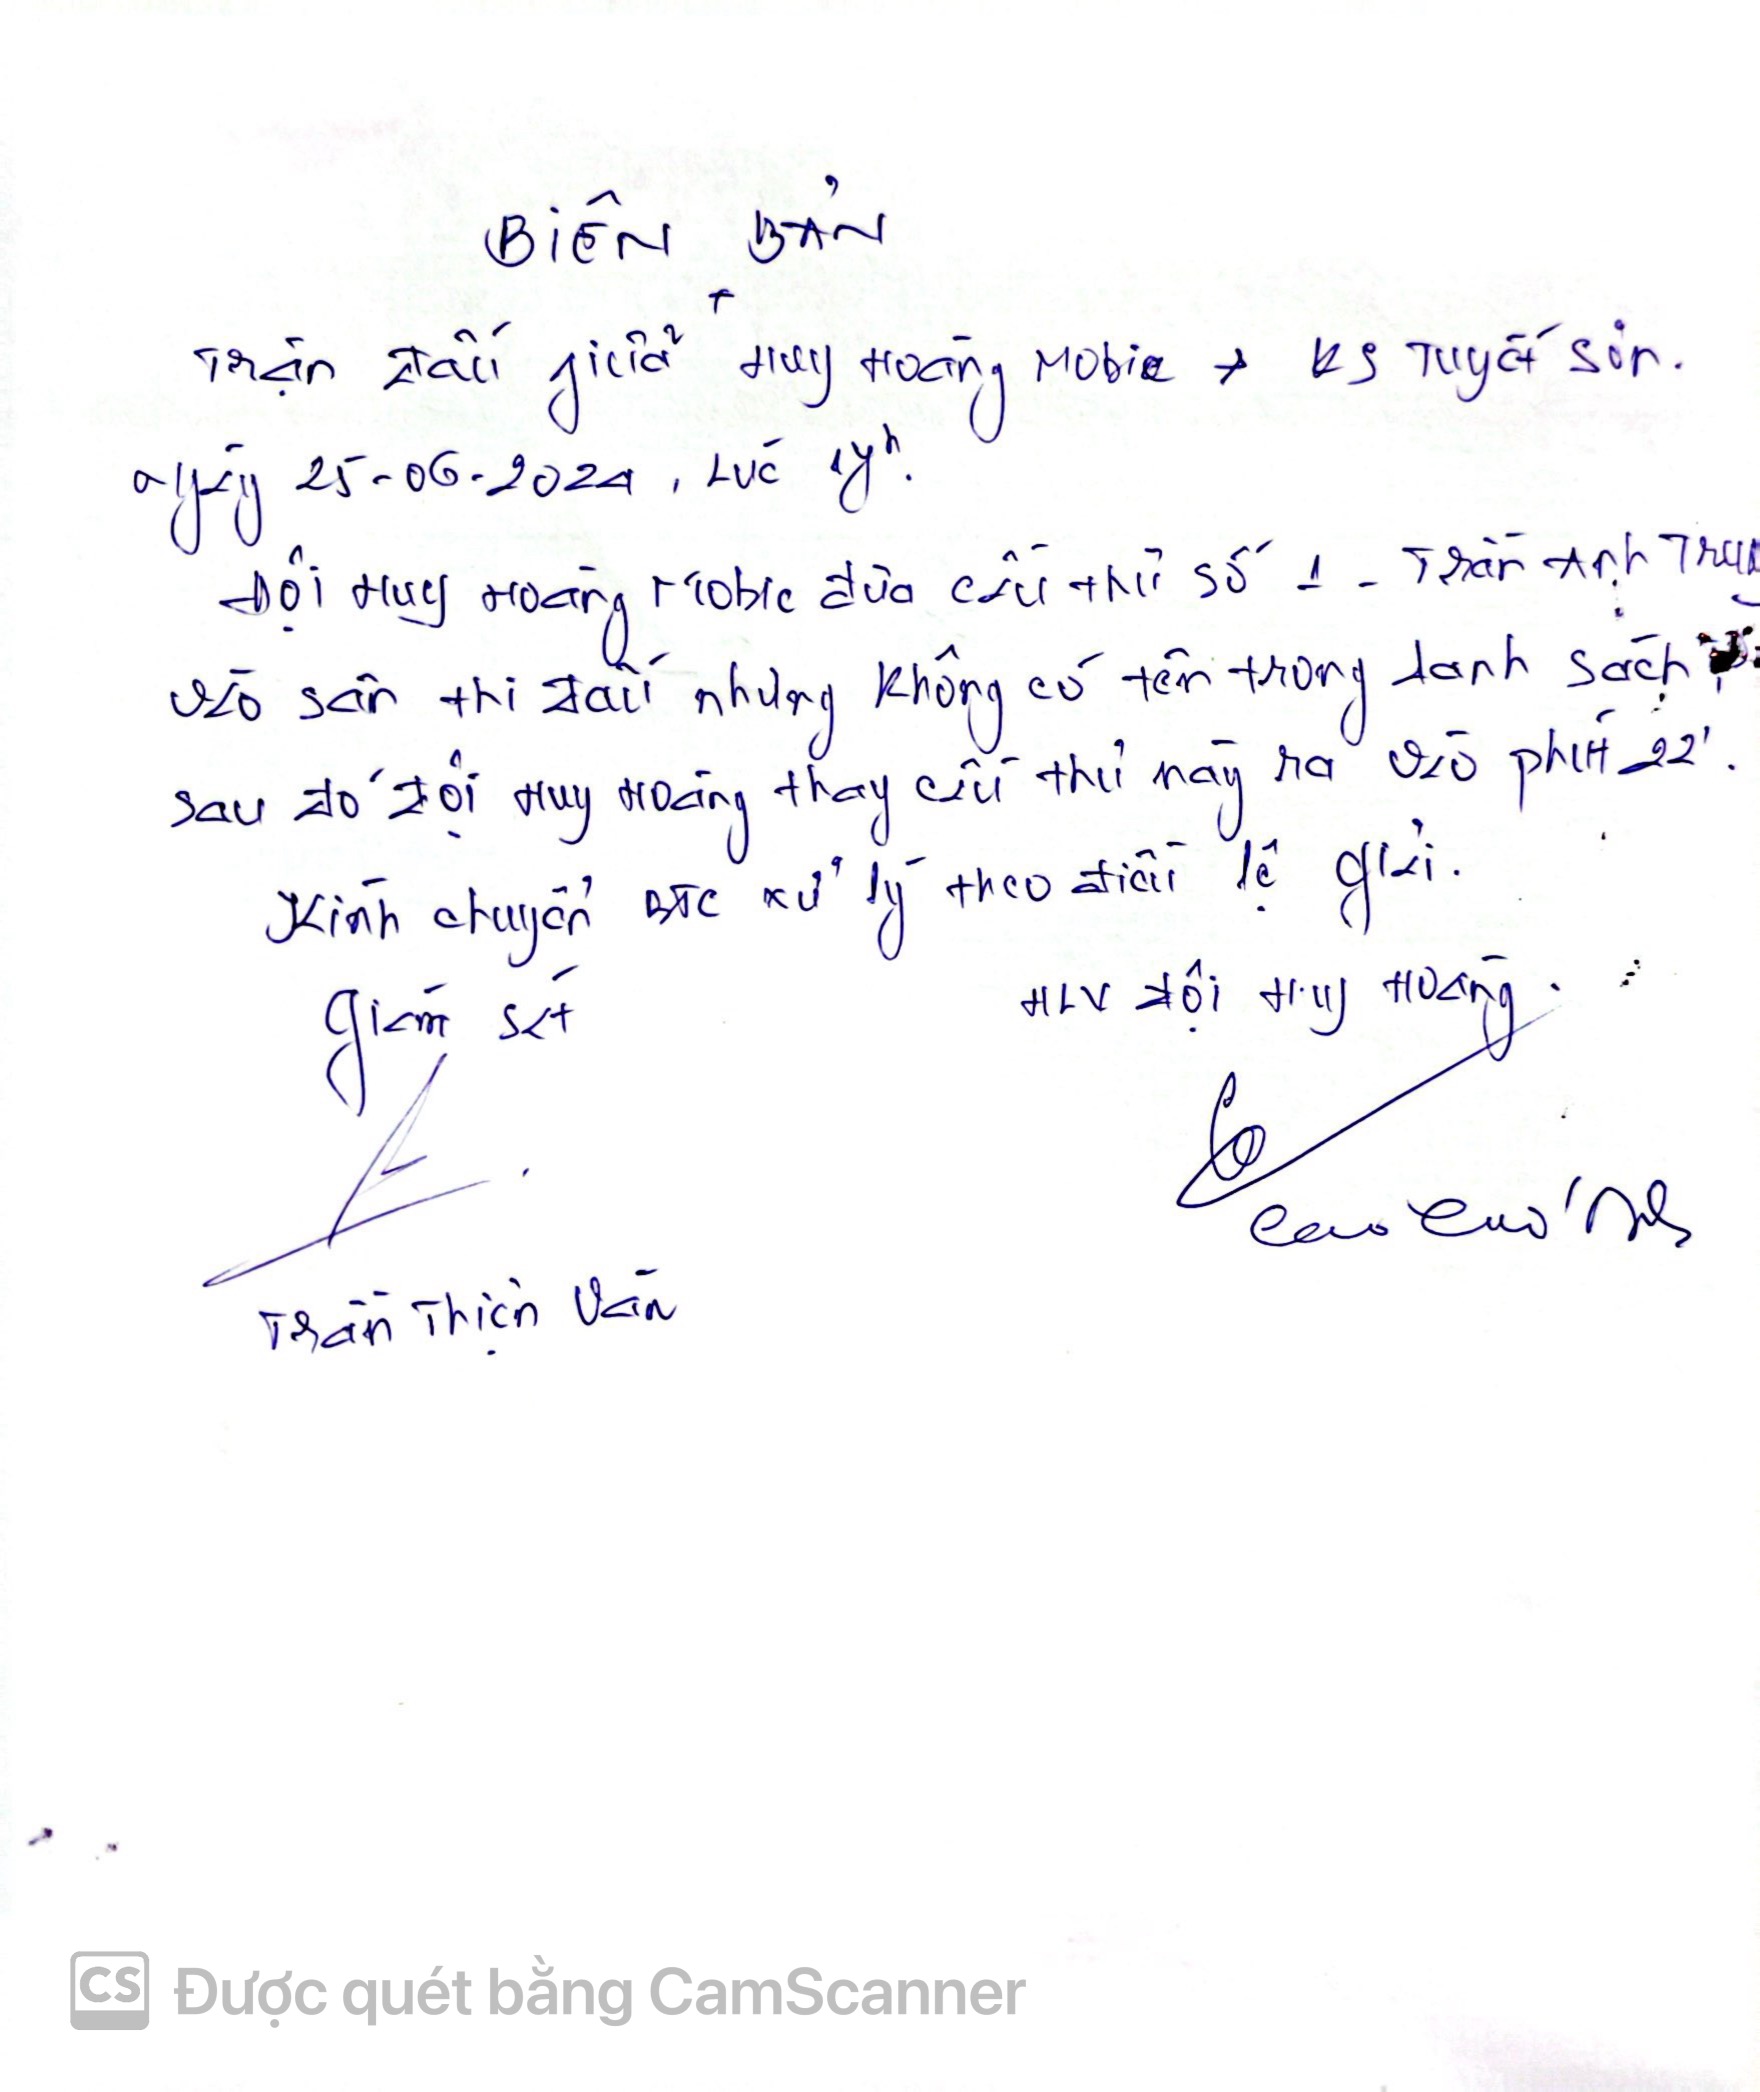 BIÊN BẢN
Trận đấu giữa Huy Hoàng Mobie + KS Tuyết Sơn.
Ngày 25-06-2024, Lúc 17h.
Đội Huy Hoàng Mobie đưa cầu thủ số 1 - Trần Anh
vào sân thi đấu nhưng không có tên trong danh sách,
sau đó đội Huy Hoàng thay cầu thủ này ra vào phút 22'.
Kính chuyển BTC xử lý theo điều lệ giải.
Giám sát
HLV đội Huy Hoàng.
Trần Thiện Văn
CS Được quét bằng CamScanner